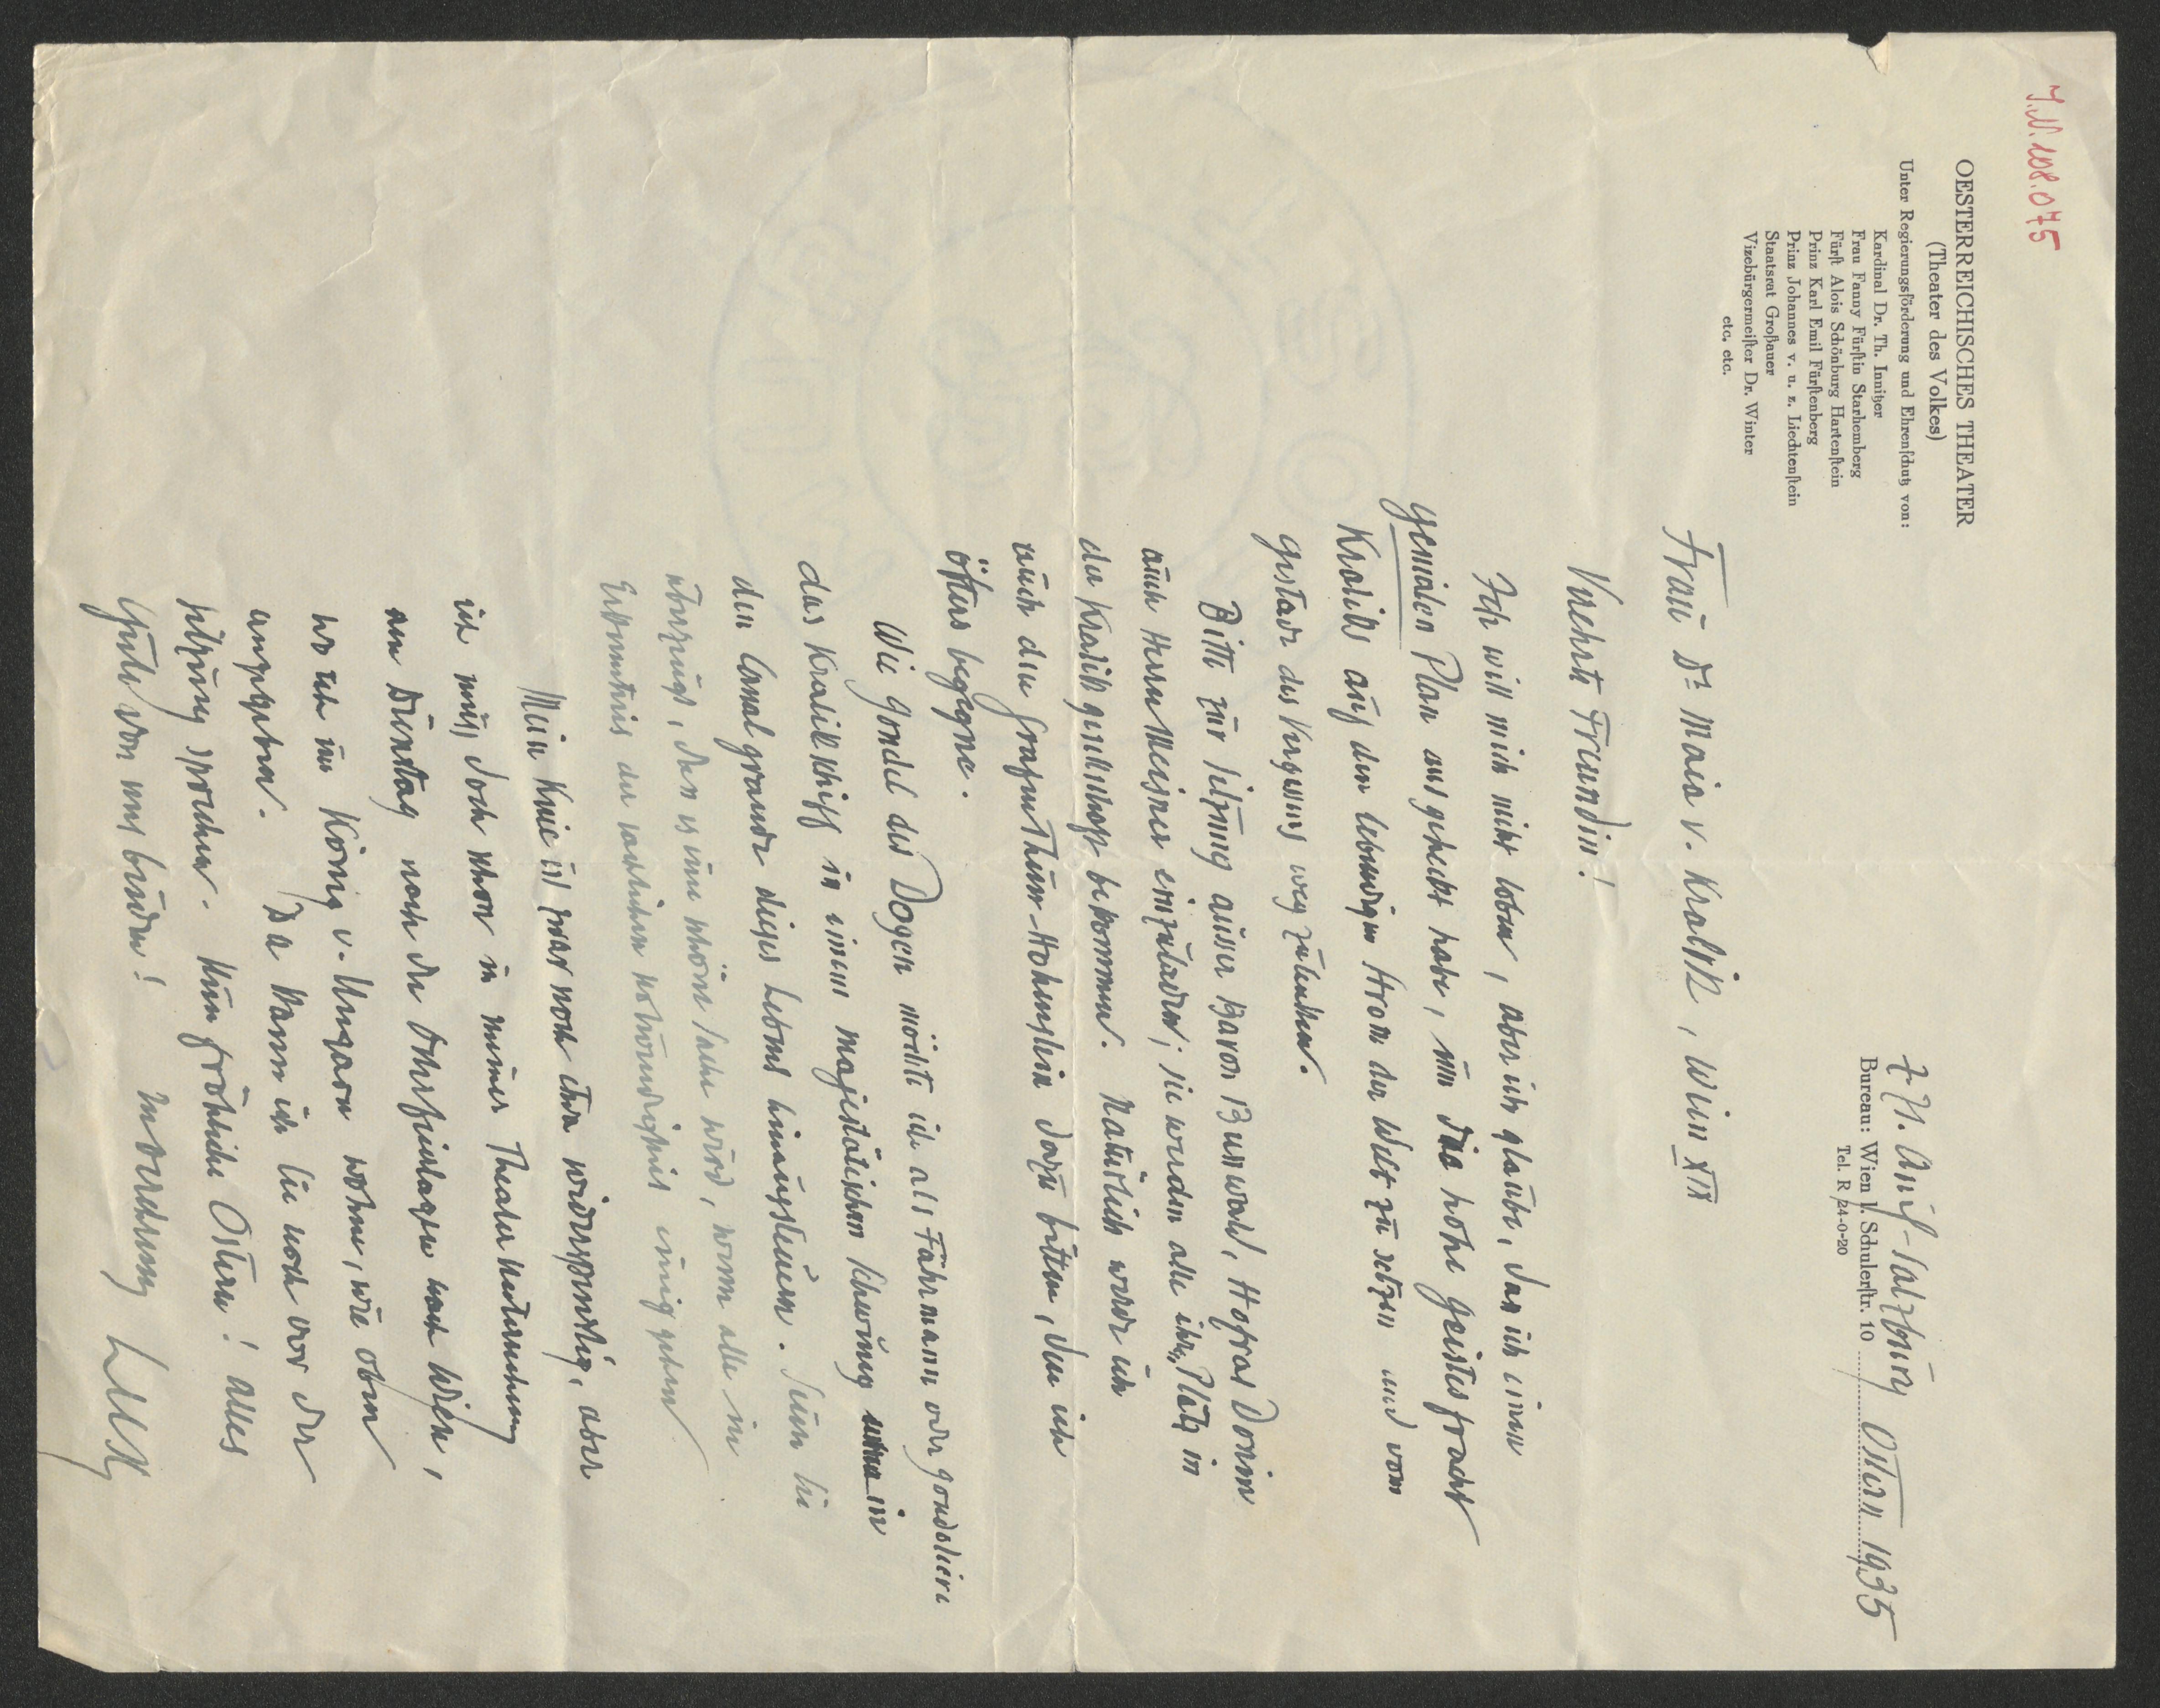 I.N. 108.075
OESTERREICHISCHES THEATER
(Theater des Volkes)
Unter Regierungsförderung und Ehrenschutz von:
Kardinal Dr. Th. Innitzer
Frau Fanny Fürstin Starhemberg
Fürst Alois Schönburg Hartenstein
Prinz Karl Emil Fürstenberg
Prinz Johannes v. u. z. Liechtenstein
Staatsrat Großauer
Vizebürgermeister Dr. Winter
etc. etc.
z. Zt. Anif-Salzburg
Bureau: Wien I. Schulerstr. 10 Ostern 1935
Tel. R/24-0-20
Frau Dr Maia v. Kralik, Wien XIX
Verehrte Freundin!
Ich will mich nicht loben, aber ich glaube, dass ich einen
genialen Plan ausgeheckt habe, um die hohe Geistesfracht
Kraliks auf den lebendigen Strom der Welt zu setzen und vom
Gestade des Vergessens weg zulenken.
Bitte zur Sitzung ausser Baron Buxwald, Hofrat Donin
auch Herrn Meixner einzuladen; sie werden alle ihren Platz in
der Kralik gesellschaft bekommen. Natürlich werde ich
auch den Grafen Thurn-Hohenstein dazu bitten, den ich
öfters begegne.
Wie Gondel des Dogen möchte ich als Fährmann oder Gondoliere
das Kralikschiff in einem majestätischen Schwung in
den Canal grande dieses Lebens hinaussteuern. Seien Sie
überzeugt, dass es eine schöne Sache wird, wenn alle in
Erkenntnis der sachlichen Notwendigkeit einig gehen.
Mein Knie ist zwar noch etwas widerspenstig, aber
ich muss doch schon in meiner Theater unternehmung
am Dienstag nach den Osterfeiertagen nach Wien,
wo ich im König v. Ungarn wohne, wie oben
angegeben. Da kann ich Sie noch vor der
Sitzung sprechen. Nun fröhliche Ostern! Alles
Gute von uns beiden!